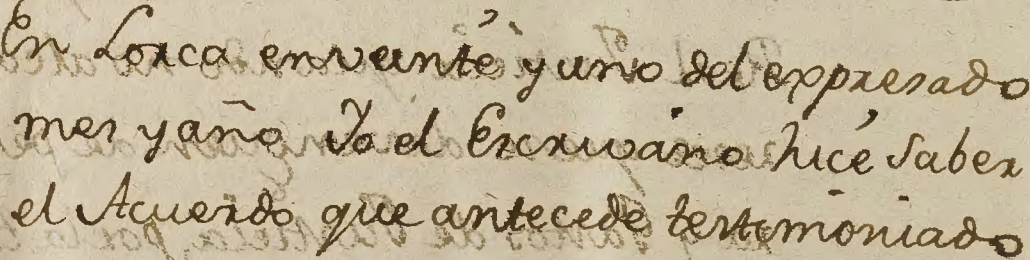 En Lorca en veinte y uno del expresado
mes y año Yo el Escrivano hice saber
el Acuerdo que antecede testimoniado